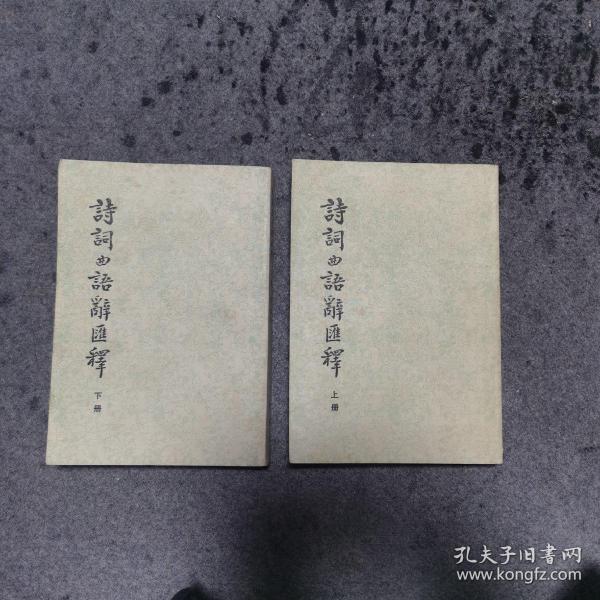 詩詞曲語辭匯釋
下册
詩詞曲語辭匯釋
上册
孔夫子旧書网
www.kongfz.com